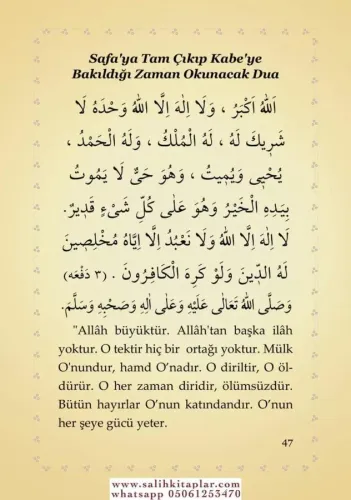 Safa'ya Tam Çıkıp Kabe'ye
Bakıldığı Zaman Okunacak Dua
اَللّٰهُ اَكْبَرُ ، وَلَا اِلٰهَ اِلَّا اللّٰهُ وَحْدَهُ لَا
شَرِيكَ لَهُ ، لَهُ الْمُلْكُ ، وَلَهُ الْحَمْدُ ،
يُحْيِى وَيُمِيتُ ، وَهُوَ حَىٌّ لَا يَمُوتُ
بِيَدِهِ الْخَيْرُ وَهُوَ عَلٰى كُلِّ شَىْءٍ قَدِيرٌ.
لَا اِلٰهَ اِلَّا اللّٰهُ وَلَا نَعْبُدُ اِلَّا اِيَّاهُ مُخْلِصِينَ
لَهُ الدِّينَ وَلَوْ كَرِهَ الْكَافِرُونَ . (٣ دَفْعَه)
وَصَلَّى اللّٰهُ تَعَالٰى عَلَيْهِ وَعَلٰى اٰلِهِ وَصَحْبِهِ وَسَلَّمَ.
"Allâh büyüktür. Allâh'tan başka ilâh
yoktur. O tektir hiç bir ortağı yoktur. Mülk
O'nundur, hamd O'nadır. O diriltir, O öl-
dürür. O her zaman diridir, ölümsüzdür.
Bütün hayırlar O'nun katındandır. O'nun
her şeye gücü yeter.
47
www.salihkitaplar.com
whatsapp 05061253470